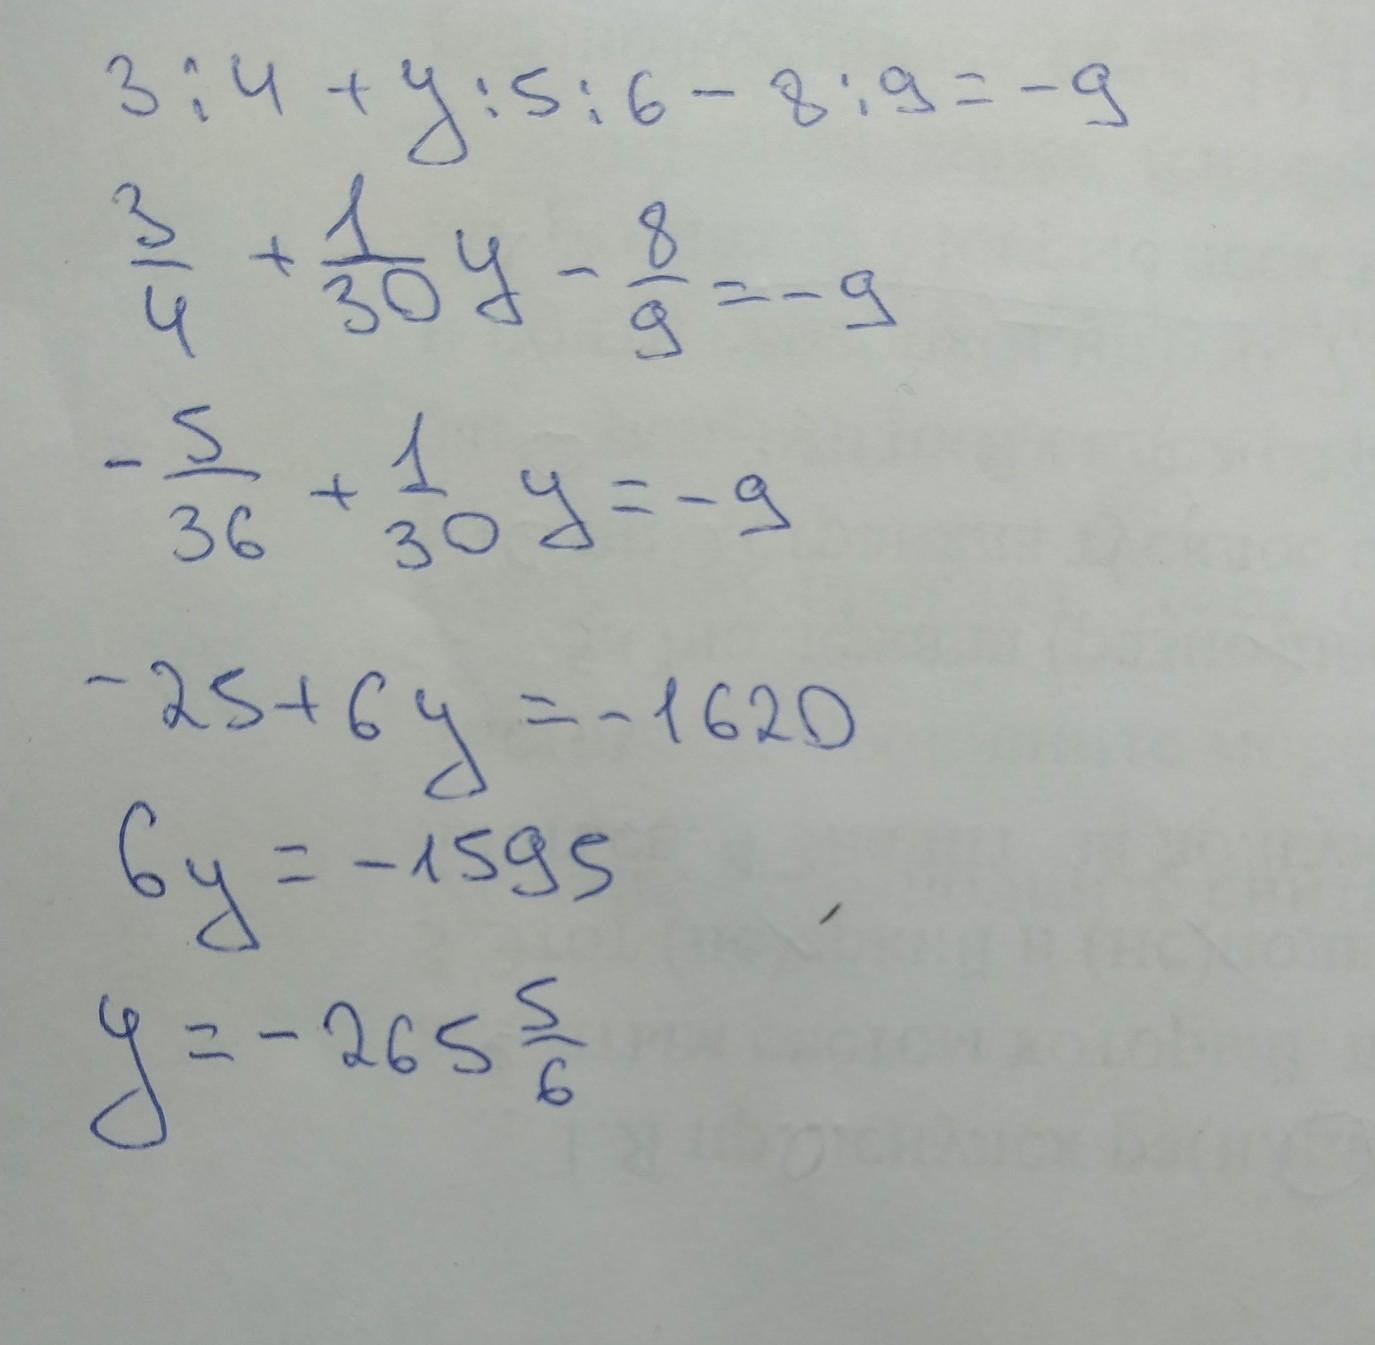 3:4 + y:5:6 - 8:9 = -9
3/4 + 1/30 y - 8/9 = -9
-5/36 + 1/30 y = -9
-25 + 6y = -1620
6y = -1595
y = -265 5/6